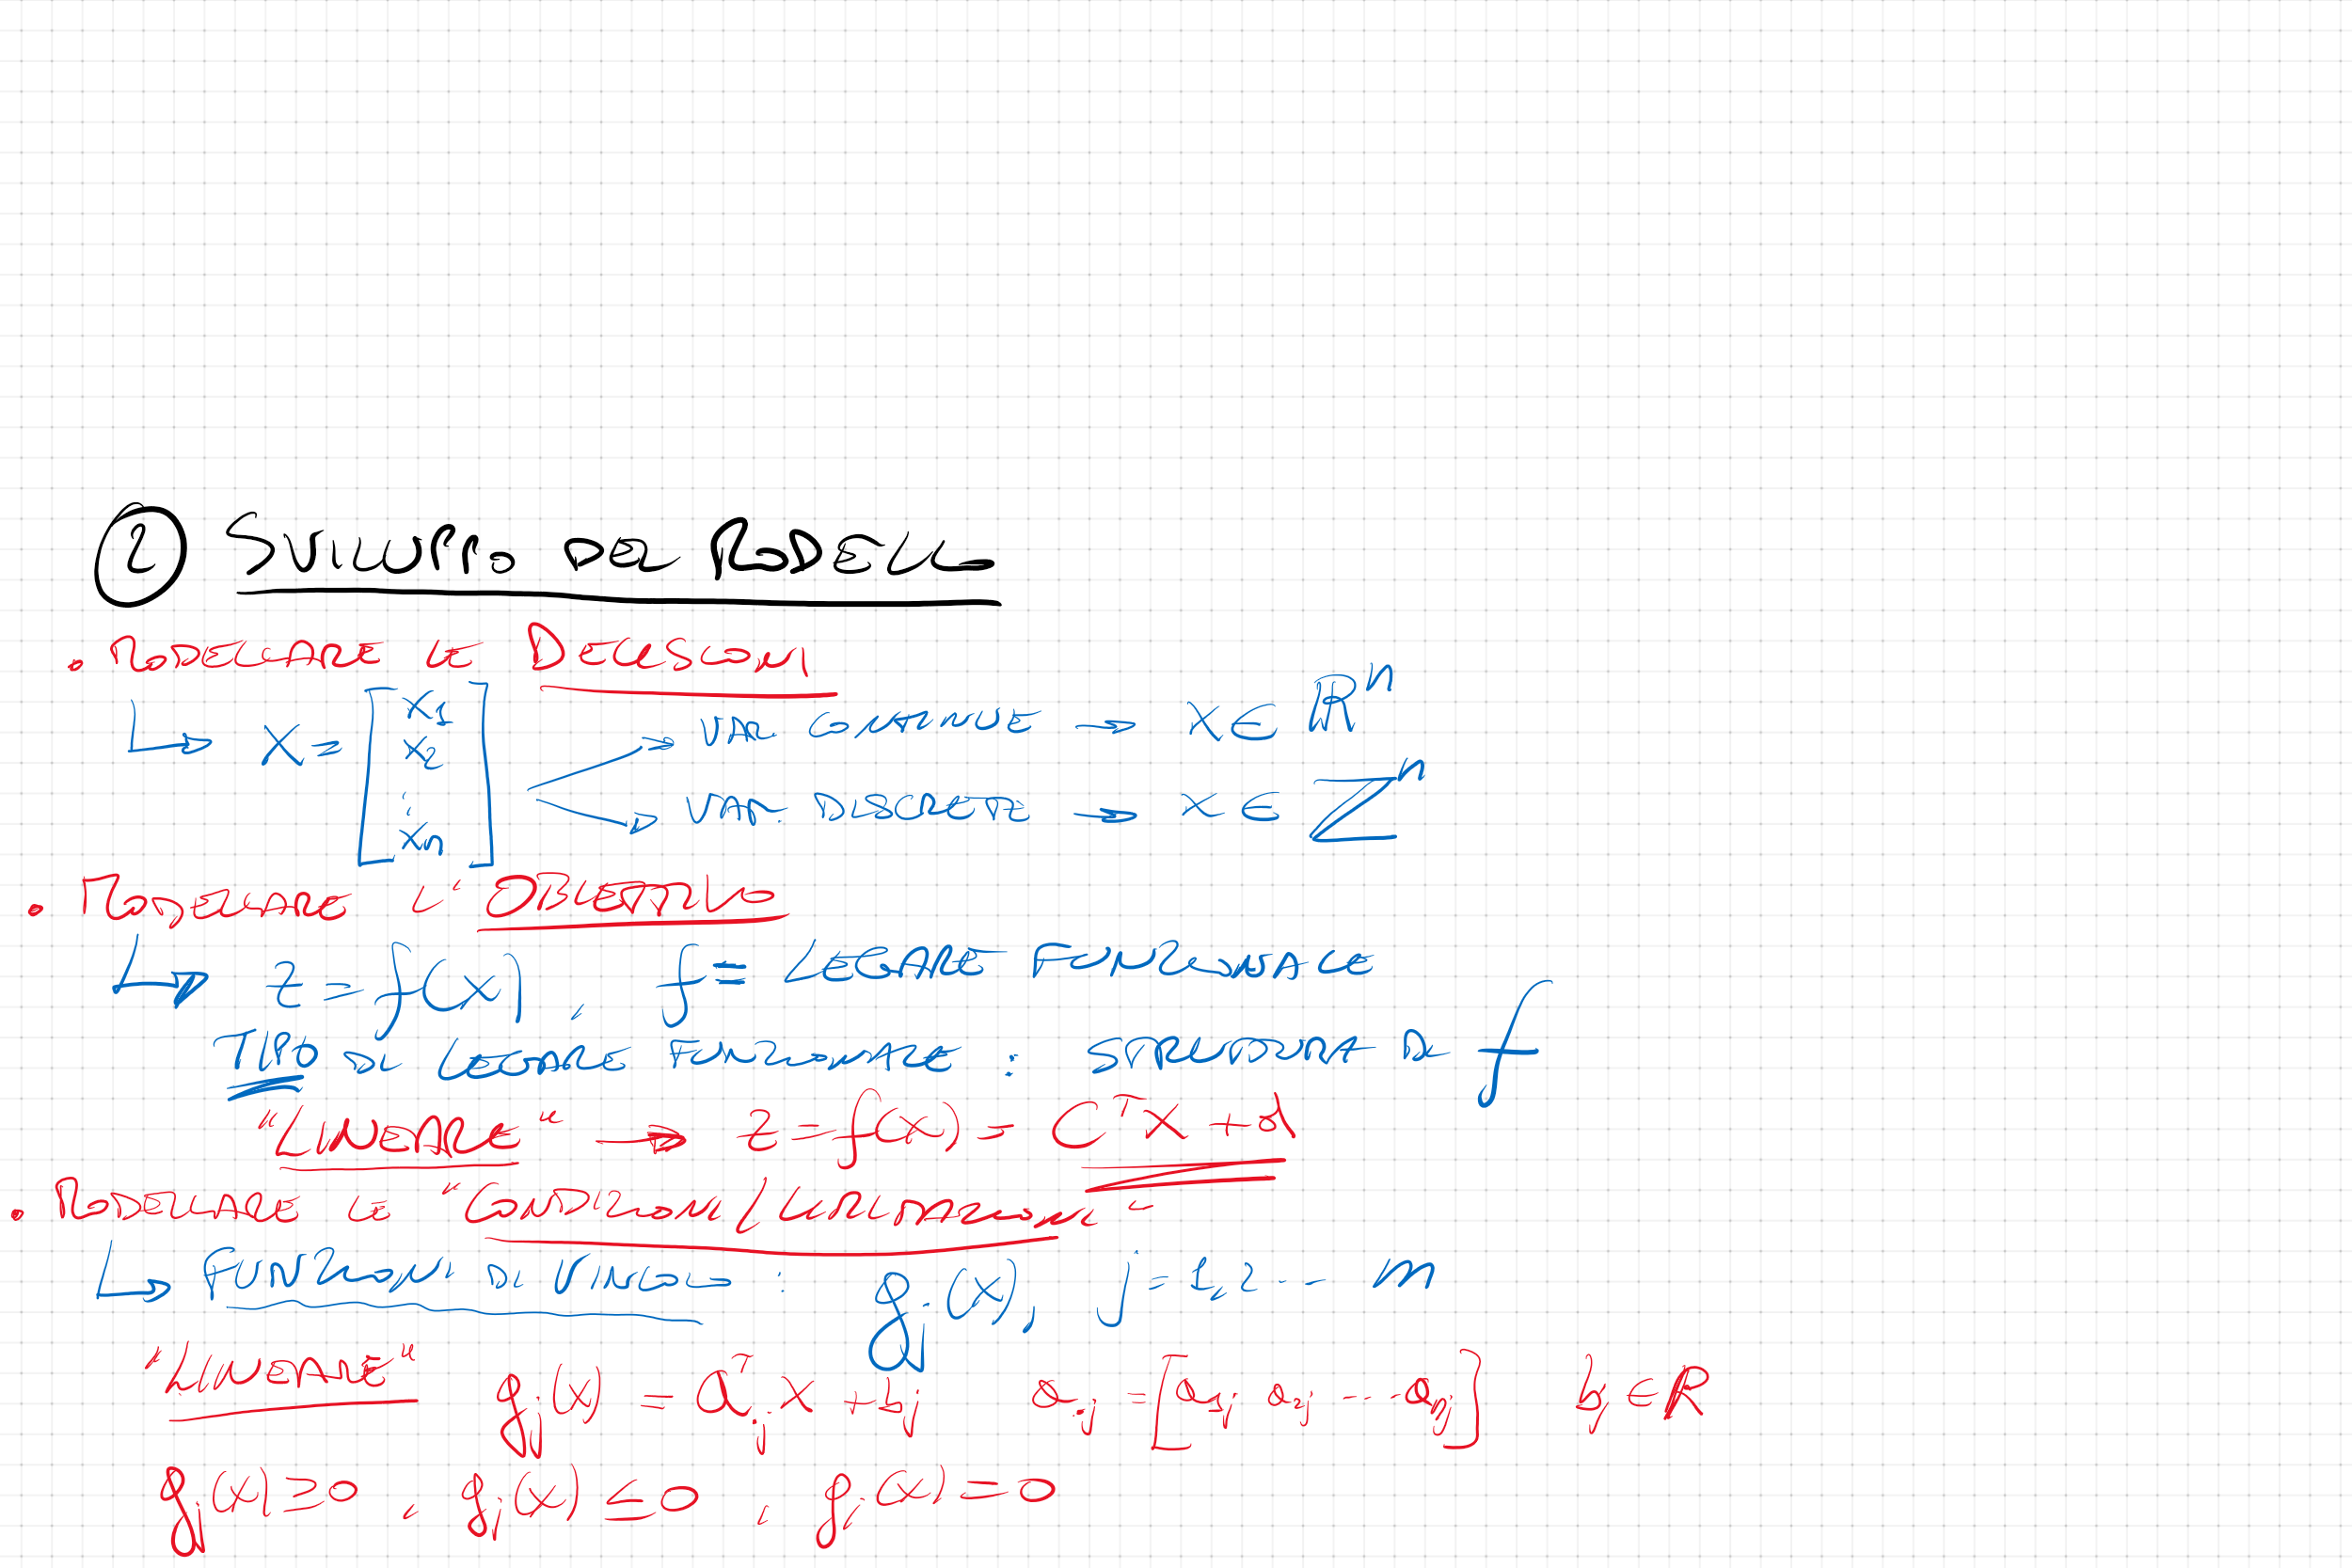 ② SVILUPPO DEL MODELLO
• MODELLARE LE DECISIONI
↳ X = [x₁ x₂ ⋮ xₙ] → VAR CONTINUE → X ∈ ℝⁿ
→ VAR. DISCRETE → X ∈ ℤⁿ
• MODELLARE L' OBIETTIVO
↳ z = f(x), f = LEGAME FUNZIONALE
TIPO DI LEGAME FUNZIONALE : STRUTTURA DI f
"LINEARE" → z = f(x) = Cᵀx + d
• MODELLARE LE "CONDIZIONI / LIMITAZIONI"
↳ FUNZIONI DI VINCOLO : gⱼ(x), j = 1, 2 ... m
"LINEARE" gⱼ(x) = aᵀ.ⱼ x + bⱼ a.ⱼ = [a₁ⱼ a₂ⱼ ... aₙⱼ] bⱼ ∈ R
gⱼ(x) ≥ 0 , gⱼ(x) ≤ 0 , gⱼ(x) = 0